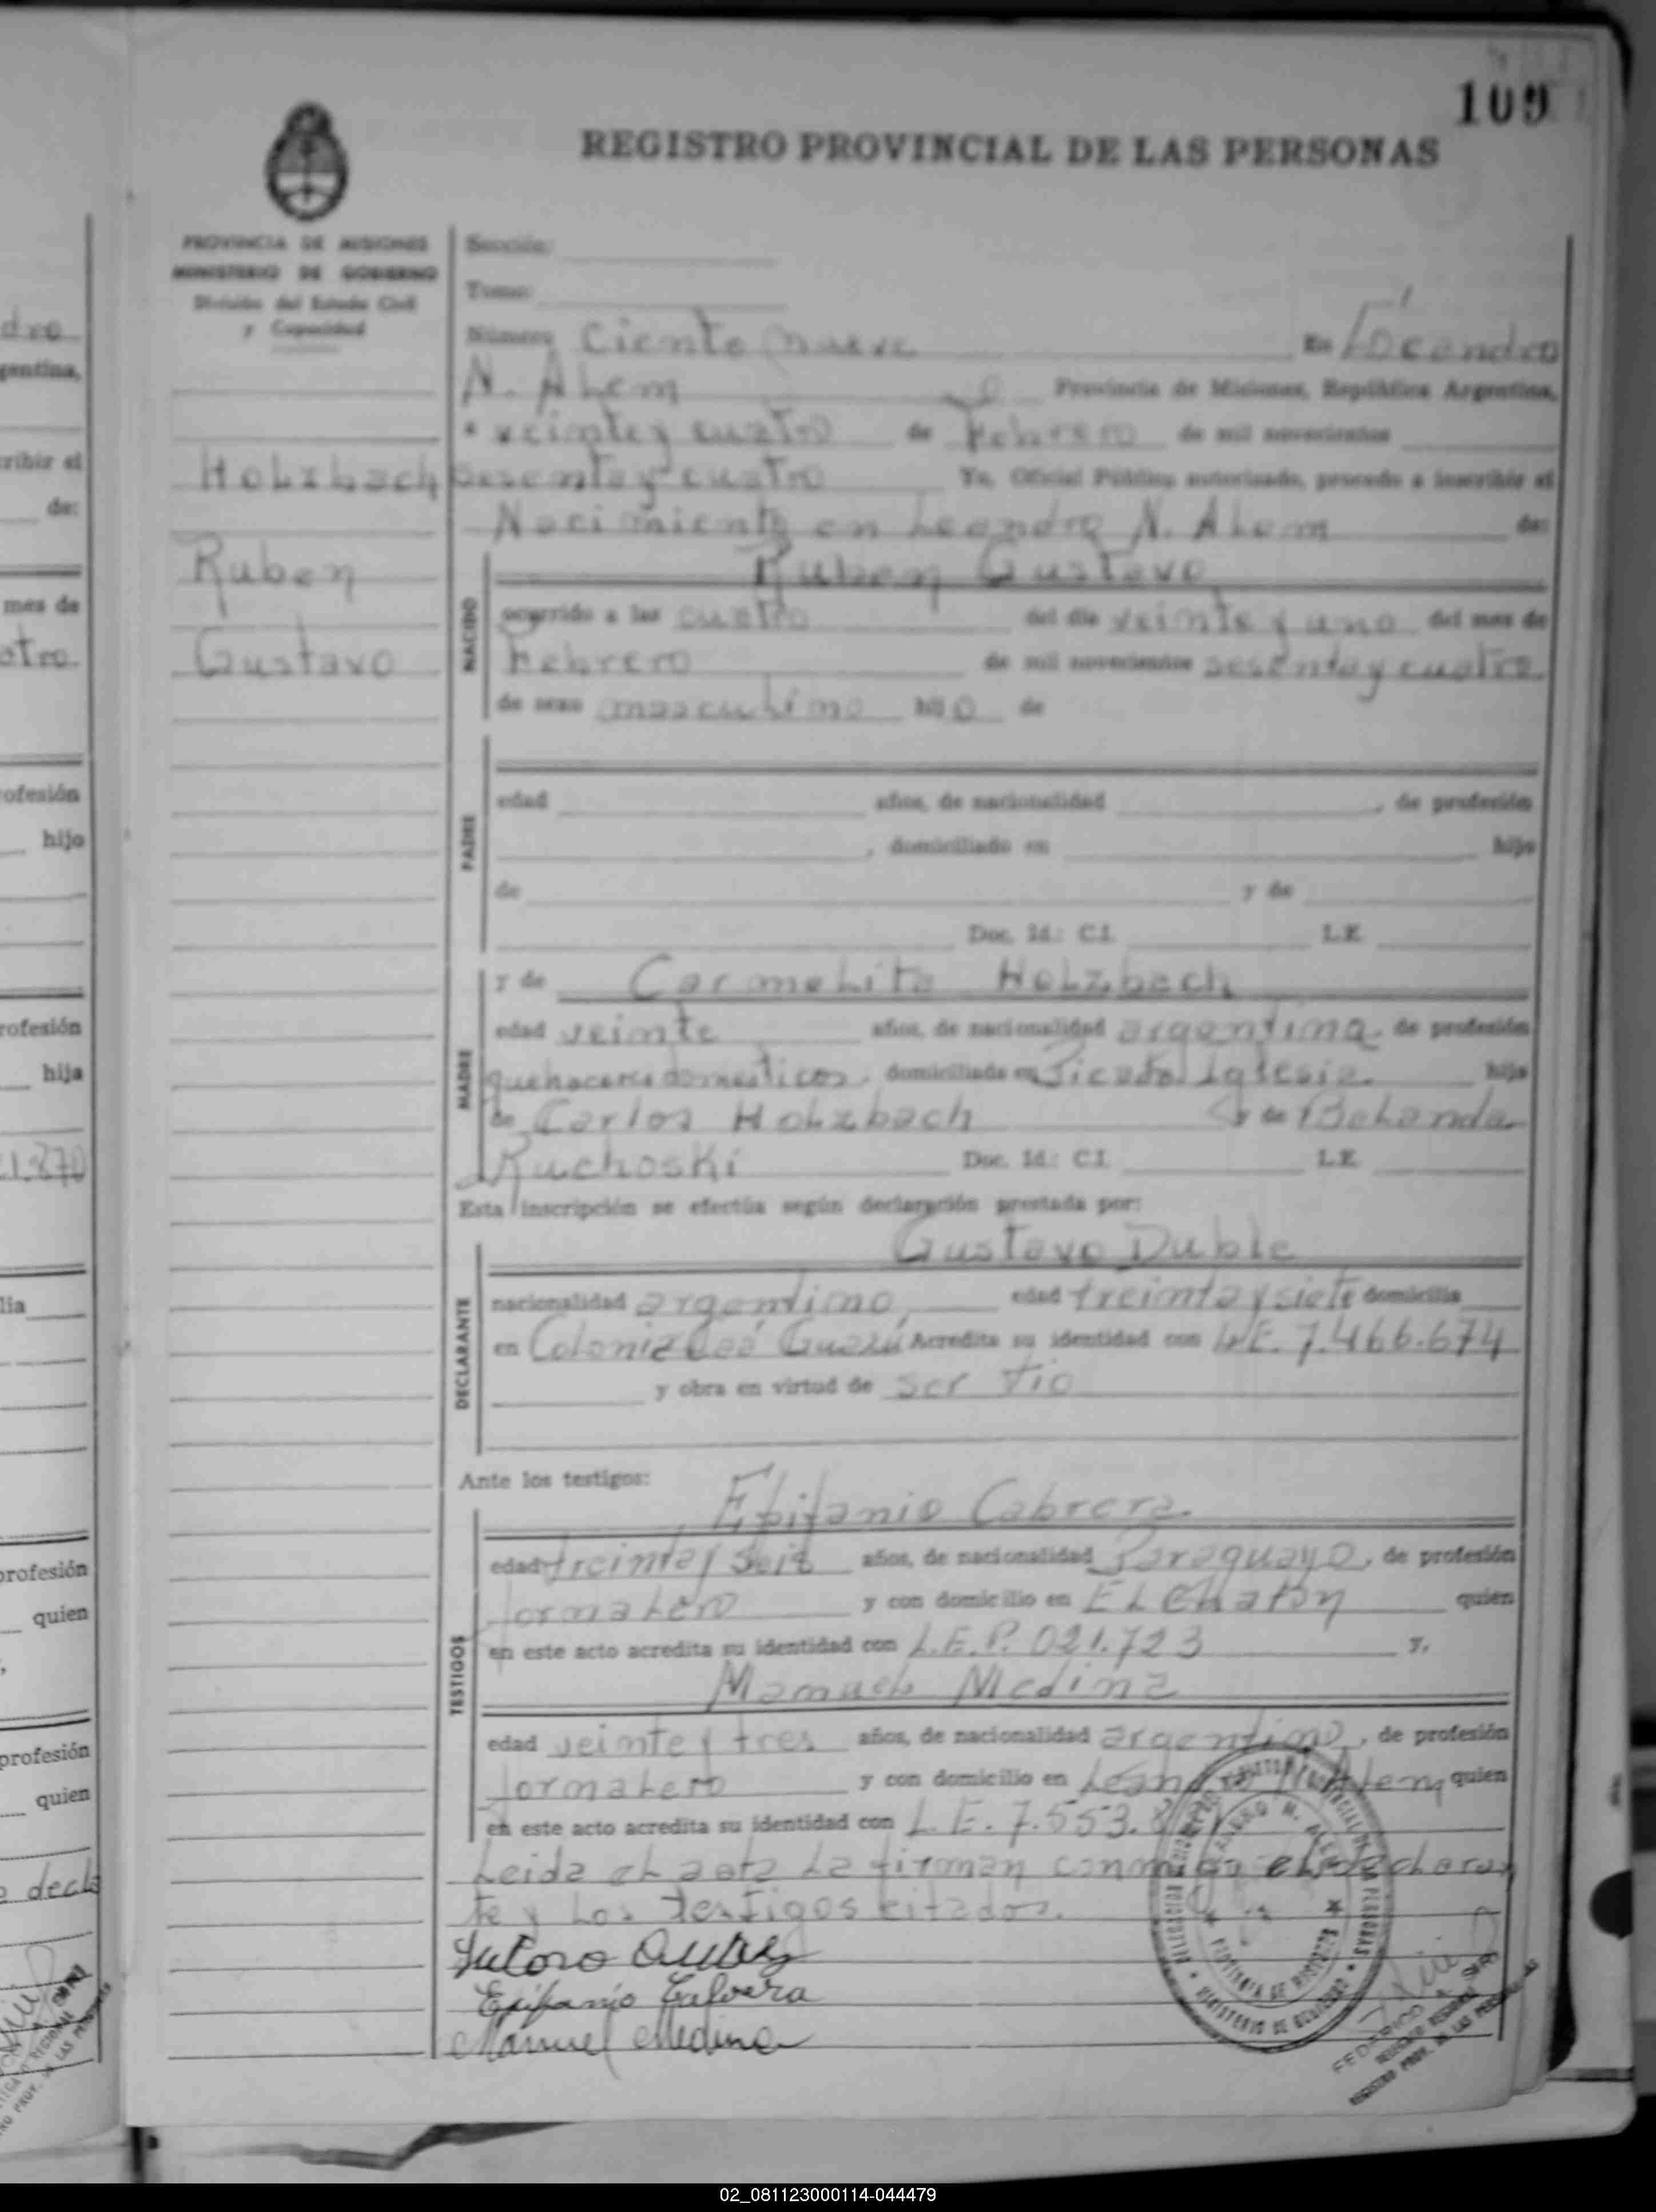 109
REGISTRO PROVINCIAL DE LAS PERSONAS
PROVINCIA DE MISIONES
MINISTERIO DE GOBIERNO
División del Estado Civil
y Capacidad
Holzbach
Ruben
Gustavo
Sección:
Tomo:
Número Ciento nueve En Leandro
N. Alem Provincia de Misiones, República Argentina,
a veinte y cuatro de Febrero de mil novecientos
sesenta y cuatro Yo, Oficial Público autorizado, procedo a inscribir el
Nacimiento en Leandro N. Alem de:
Ruben Gustavo
NACIDO
ocurrido a las cuatro del día veinte y uno del mes de
Febrero de mil novecientos sesenta y cuatro
de sexo masculino hijo de
PADRE
edad años, de nacionalidad , de profesión
, domiciliado en hijo
de y de
Doc. Id.: C.I. L.E.
MADRE
y de Carmelita Holzbach
edad veinte años, de nacionalidad argentina, de profesión
quehaceres domesticos, domiciliada en Picada Iglesia hija
de Carlos Holzbach y de Belanda
Ruchoski Doc. Id.: C.I. L.E.
Esta inscripción se efectúa según declaración prestada por:
Gustavo Duble
DECLARANTE
nacionalidad argentino, edad treinta y siete domicilia
en Colonia Caá Guazú Acredita su identidad con L.E. 7.466.674
y obra en virtud de ser tio
Ante los testigos:
Epifanio Cabrera.
TESTIGOS
edad treinta y seis años, de nacionalidad Paraguayo, de profesión
Jornalero y con domicilio en El Chatón quien
en este acto acredita su identidad con L.E.P. 021.723 y,
Manuel Medina
edad veinte y tres años, de nacionalidad argentino, de profesión
Jornalero y con domicilio en Leandro N. Alem quien
en este acto acredita su identidad con L.E. 7.553.
Leida el acta la firman conmigo el declaran
te y los testigos citados.
Epifanio Cabrera
Manuel Medina
FEDERICO
REGISTRO PROV. DE LAS PERSONAS
02_081123000114-044479